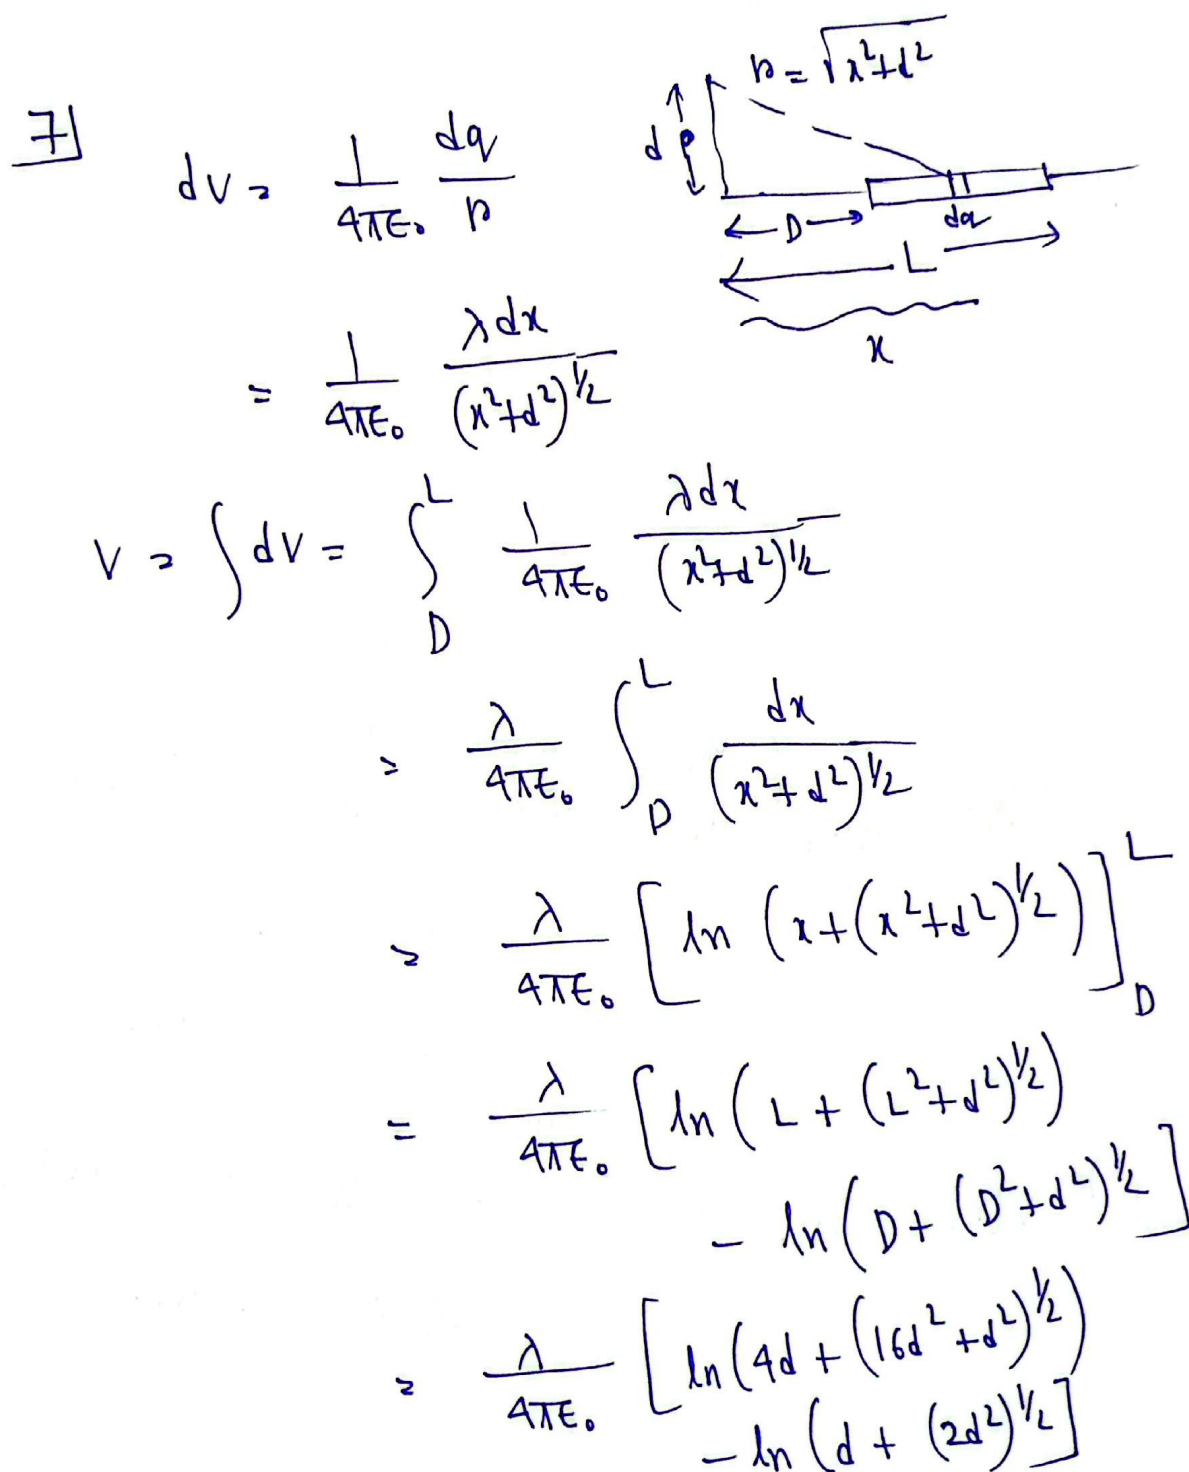 r = √(x²+d²)
7]
dV = 1/4πε₀ dq/r
d
P
D
dq
L
x
= 1/4πε₀ λdx/(x²+d²)^½
V = ∫dV = ∫_D^L 1/4πε₀ λdx/(x²+d²)^½
= λ/4πε₀ ∫_D^L dx/(x²+d²)^½
= λ/4πε₀ [ln (x+(x²+d²)^½)]_D^L
= λ/4πε₀ [ln (L + (L²+d²)^½)
- ln (D + (D²+d²)^½]
= λ/4πε₀ [ln (4d + (16d²+d²)^½)
- ln (d + (2d²)^½]